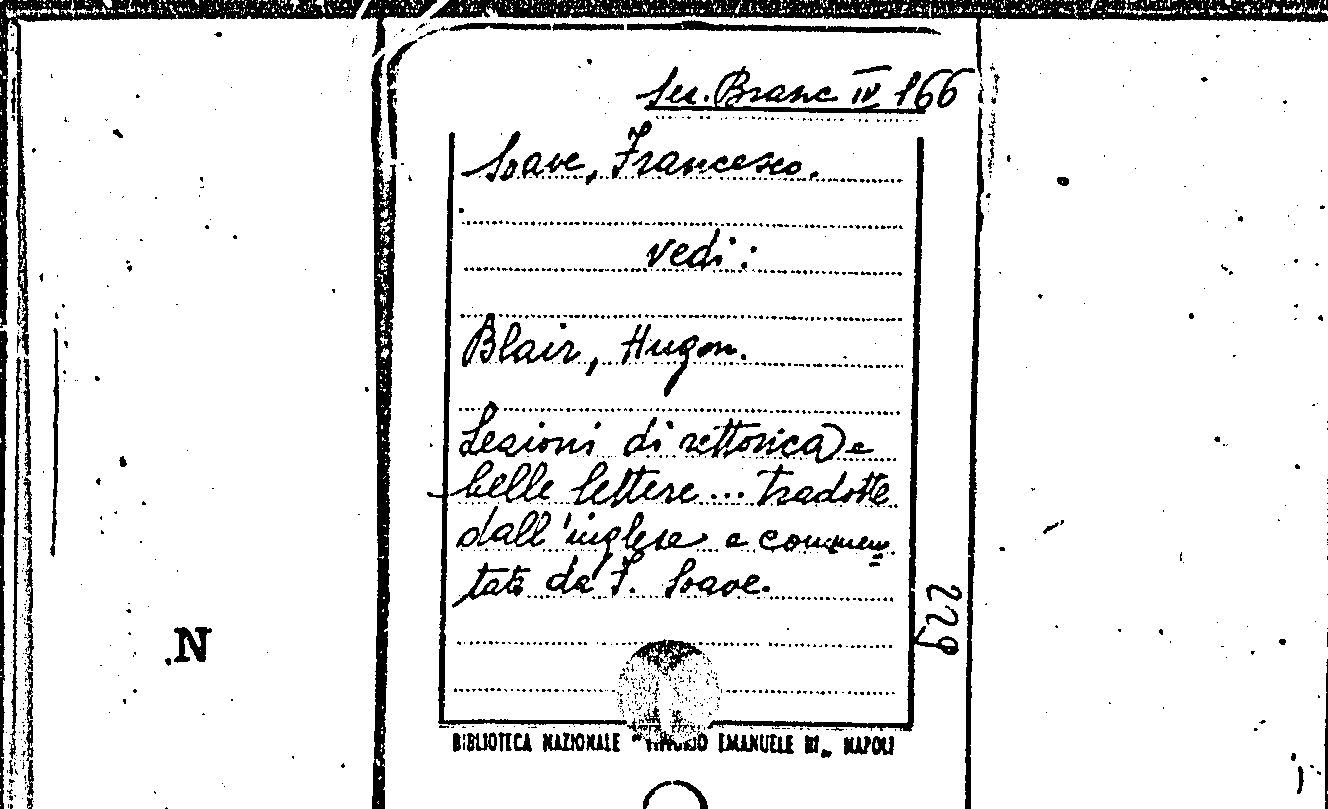 Sez. Branc IV 166
Soave, Francesco.
vedi:
Blair, Hugon.
Lezioni di rettorica e
belle lettere... tradotte
dall'inglese e commen=
tate da F. Soave.
229
N
BIBLIOTECA NAZIONALE "VITTORIO EMANUELE III„ NAPOLI